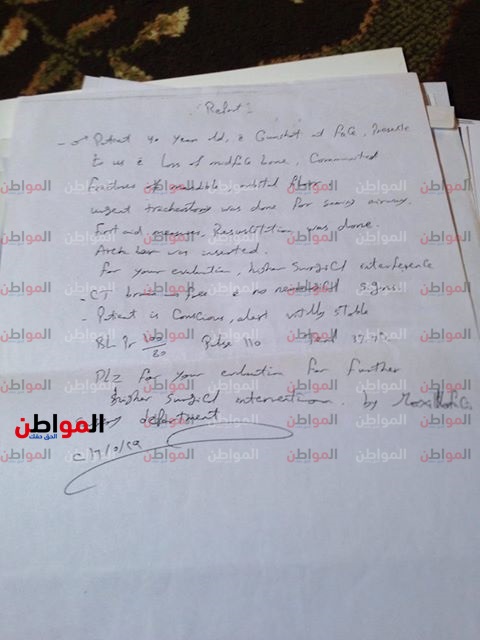 Report
- ♂ Patient 40 year old, c̄ Gunshot at face, Presente
to us c̄ Loss of midface bone, Comminuted
fractures of mandible, orbital floor,
urgent tracheostomy was done for saving airway.
First aid measures, Resuscitation was done.
Arch bar was inserted.
For your evaluation, higher surgical interference
- CT brain free c̄ no signs
- Patient is Conscious, alert vitally stable
BL Pr 100/80 Pulse 110 37.
PLZ for your evaluation for further
higher surgical intervention. by
department
المواطن
الحق حقك
المواطن